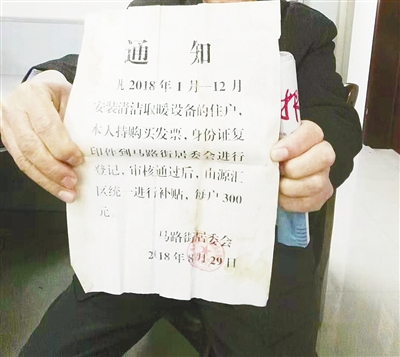 通知
凡2018年1月—12月
安装清洁取暖设备的住户，
本人持购买发票，身份证复
印件到马路街居委会进行
登记，审核通过后，由源汇
区统一进行补贴，每户300
元。
马路街居委会
2018年8月29日